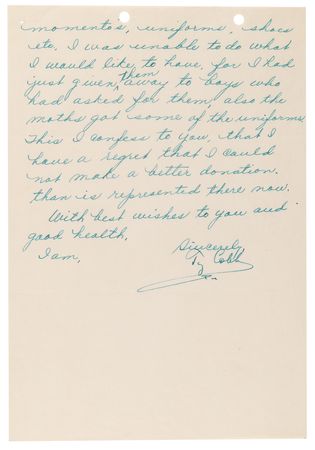 momentos, uniforms, shoes
etc. I was unable to do what
I would like to have, for I had
just given them away to boys who
had asked for them, also the
moths got some of the uniforms.
This I confess to you, that I
have a regret that I could
not make a better donation.
than is represented there now.
With best wishes to you and
good health,
I am,
Sincerely,
Ty Cobb